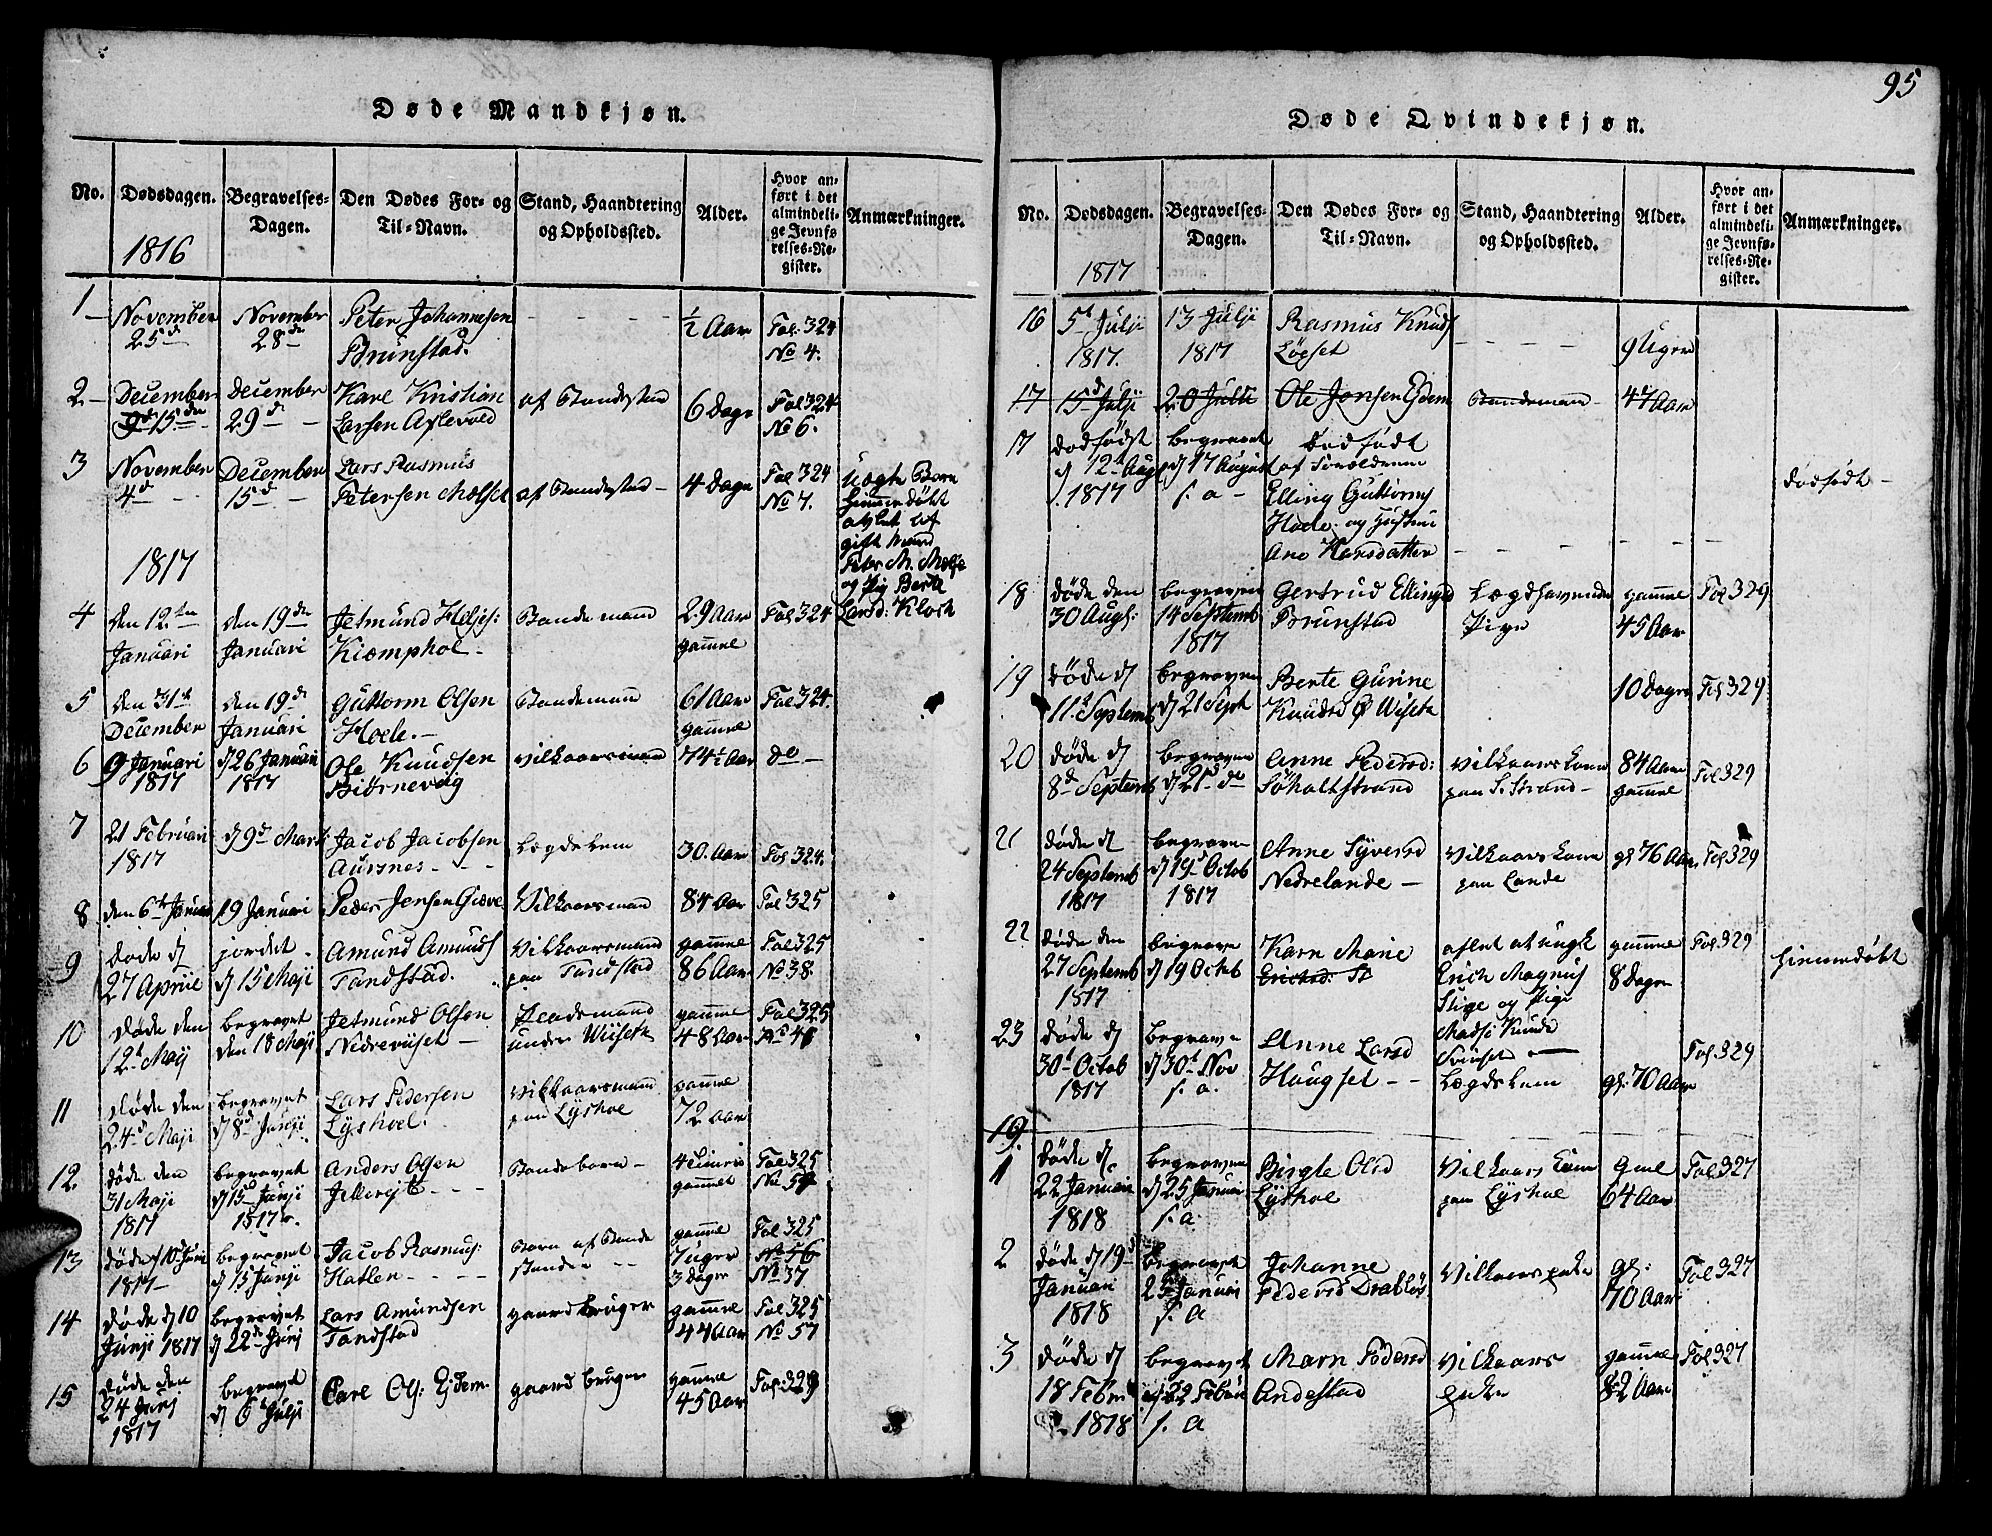 Døde Mandkjøn.
No.
Dødsdagen.
Begravelses-
Dagen.
Den Dødes For- og
Til-Navn.
Stand, Haandtering
og Opholdssted.
Alder.
Hvor an-
ført i det
almindeli-
ge Jevnfø-
relses-Re-
gister.
Anmærkninger.
1816
1
November
25d
November
28de
Peter Johannesen
Brunstad.
½ Aar
Fol. 324
No 4.
2
December
15den
December
29d
Karl Kristian
Larsen Aflevold
af Bondestad
6 Dage
Fol 324
No 6.
3
November
4d
December
15d
Lars Rasmus
Petersen Molset
af Bondestad
4 Dage
Fol 324
No 7.
Uægte Barn
hiemmedøbt
avlet af
gift Mand
og Pig Berte
Larsd: Kloch
1817
4
den 12ten
Januari
den 19de
Januari
Jetmund Heljes:
Kiemphol
Bondemand
29 Aar
gamle
Fol 324
5
den 31t
December
den 19de
Januari
Guttorm Olsen
Hoele.
Bondemand
61 Aar
gamme
Fol 324.
6
9 Januari
1817
d 26 Januari
1817
Ole Knudsen
Biørnevog
Vilkaarsmand
74½ Aar
do
7
21 Februari
1817
d 9d Mart
Jacob Jacobsen
Aursnes
Lægdslem
30. Aar
Fol 324.
8
den 6t Januar
19 Januari
Peder Jensen Giøve
Vilkaarsmand
84 Aar
Fol 325
9
Døde d
27 Apriie
jordet
d 15 Maji
Amund Amunds
Tandstad.
Vilkaarsmand
paa Tandstad
gamme
86 Aar
Fol 325
No 38
10
Døde den
12t Maij
begravet
den 18 Maji
Jetmund Olsen
Nedreviiset
under Wiiseth
gamme
48 Aar
Fol 325
11
døde den
24d Maji
begravet
d 8d Junji
Lars Pedersen
Lyshoel.
Vilkaarsmand
paa Lyshoe
gamme
72 Aar
12.
døde den
31 Maji
1817
begravet
d 15d Junji
1817
Anders Olsen
Bondebarn
gammel
Fol 325
13
døde d 10 Juni
1817
begravet
d 15 Junji
Jacob Rasmus:
Hatlen
Barn af Bonde
standen
gamme
7 uger
3 dager
Fol 325
No 56
No 37
14
Døde d 10
Junji 1817
begravet
d 22de Junj
Lars Amundsen
Tandstad
gaardbruger
gamme
44 Aar
Fol 325
No 57
15
Døde den
24 Junj
1817
begravet
d 6t Julji
Carl Ols: Ejdem
gaardbruger
gamme
45 Aar
Fol. 329
95
Døde Qvindekjøn.
No.
Dødsdagen.
Begravelses-
Dagen.
Den Dødes For- og
Til-Navn.
Stand, Haandtering
og Opholdssted.
Alder.
Hvor an-
ført i det
almindeli-
ge Jevnfø-
relses-Re-
gister.
Anmærkninger.
1817
16
5t Julji
1817.
13 Julji
1817
Rasmus Knuds
Løfset
9 Uger
17
15d Julji
20 Julli
Ole Jonsen Ejdem
Bondemand
47 Aar
17
dødfødst
d 12t Aug
1817
begravet
d 17 August
s. a
Dødfødt
af Forældrene
Elling Guttorms
Hoele: og Hustrue
Ane Larsdatter
Dødfødt
18
døde den
30 Augs:
begraven
14 Septemb
1817
Gertrud Ellingsd
Brunstad
Lægdhavende
Pige
gamme
45 Aar
Fol 329
19
Døde d
11t Septemb
begraven
d 21 Sept
Berte Gurine
Knudsd Ø Wiseth
10 Dager
Fol 329
20
Døde d
8d Septemb
begraven
d 21d do
Anne Pedersd:
Søholtstrand
Vilkaarskone
paa S. Strand
84 Aar
gamme
Fol 329
21
døde d
24 Septemb
1817
begraven
d 19d Octob
1817
Anne Syversd
Nedrelande
Vilkaarskone
paa Lande
gl 76 Aar
Fol 329
22
døde den
27 Septemb
1817
begrave
d 19 Octob
Karn Marie
Ericksd: St
aflet af ungk
Erich Magnus
Stige og Pige
Madsi Knuds
gamme
8 Dager
Fol 329
hiemmedøbt
23
Døde d
30t Octob
1817
begrave
d 30t Nov
s. a.
Anne Larsd
Haugset
Lægdslem
gl. 70 Aar
Fol. 329
19.
1
Døde d.
22 Januari
1818
begraven
d 25 Januari
s. a
Birgte Olsd
Lyshoe
Vilkaars Kone
paa Lyshoe
Gml
64 Aar
Fol 327
2
Døde d 19d
Januari
1818
begravet
25 Januari
s. a
Johanne
Pedersd Drabløs
Vilkaars enke
gl:
70 Aar
Fol 327
3
Døde d
18 Febr
1818
begravet
d 22 Februa
s. a
Marn Pedersd
Andestad
Vilkaars
enke
gamme
82 Aar
Fol 327